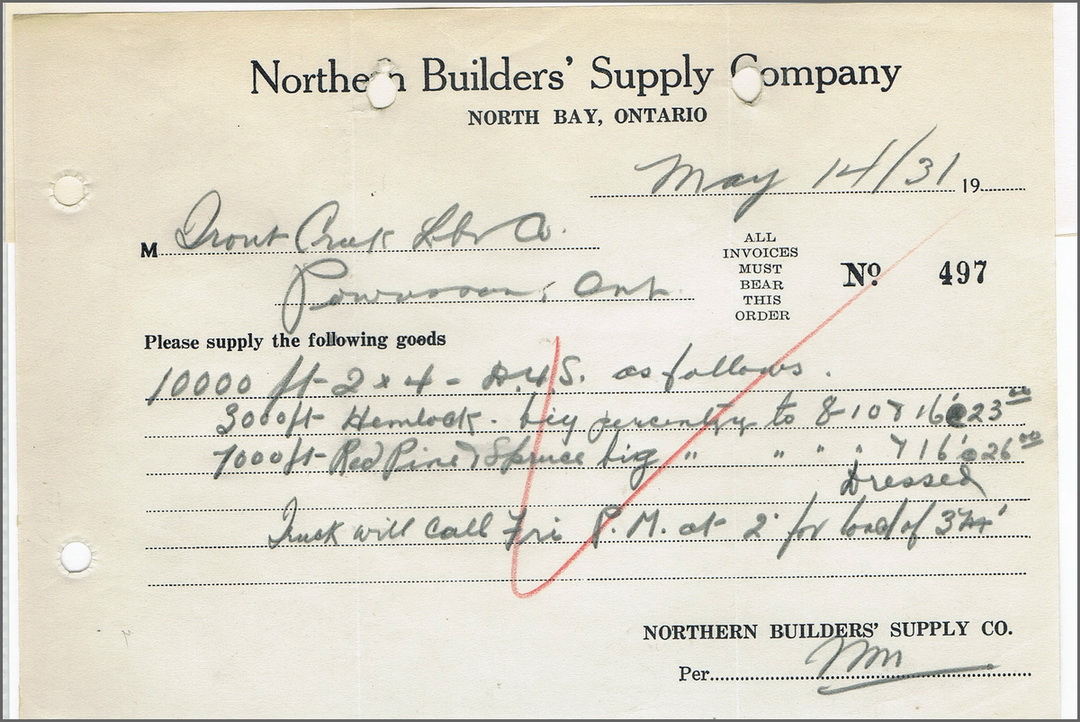 Northern Builders' Supply Company
NORTH BAY, ONTARIO
May 14/31 19
M Trout Creek Lbr Co.
Powassan, Ont
ALL
INVOICES
MUST
BEAR
THIS
ORDER
No 497
Please supply the following goods
10000 ft - 2 x 4 - D.4.S. as follows.
3000 ft - Hemlock - big to 8 - 10 & 16' @ 23 00
7000 ft - Red Pine & Spruce big " " " " & 16' @ 26 00
Dressed
Truck will call Fri P.M. at 2 for load of
NORTHERN BUILDERS' SUPPLY CO.
Per